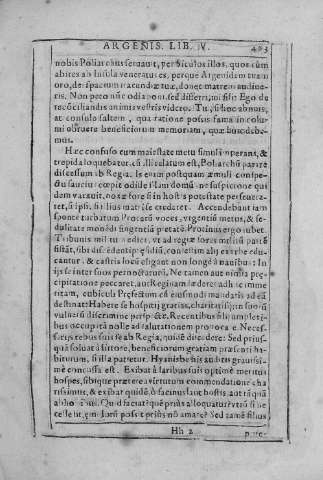 ARGENIS. LIB. V. 483
nobis Poliarchus seruauit, per
abires ab Insula veneratus es, perque Argenidem tuam
oro, de spatium iracundiæ tuæ, donec matrem audiue-
ris. Non peto nunc odia poni, sed differri, mi fili: Ego de
reconciliandis animis vestris videro. Tu, si hoc abnuis,
at consulo saltem, qua ratione possis fama incolu-
mi obruere beneficiorum memoriam, quæ huic debe-
mus.
Hæc confuso cum maiestate metu simul imperans, &
trepida loquebatur, cùm illi allatum est, Poliarchum parare
discessum ab Regia. Is enim postquam æmuli conspe-
ctu saucius cœpit odisse illam domum, ne suspicione qui
dem vacauit, noxæ fore si in hostis potestate perseuera-
ret, si ipsi, si filius mater crederet. Accendebant iam
sponte turbatum Procerum voces, vrgentium metus, & se-
dulitate monendi fingentium pretia. Protinus ergo iubet
Tribunis militum edicer, vt ad regiæ fores miles parato
sistat, sibi discedenti præsidium, comitum alij exire edu-
cantur, & castris locum eligant non longè à nauibus: In
ijs se inter suos pernoctaturum. Ne tamen aut nimia præ-
cipitatione peccaret, aut Reginam læderet adhuc imme
ritam, cubiculi Præfectum cum eiusmodi mandatis ad eam
destinat: Habere se hospitij gratias, charitatisque in suorum
vulnerum discrimine perspectæ. Recentibus filij
tibus occupatâ nolle ad salutationem prouocare. Neces-
sarijs rebus suis se ab Regia, quasi discedere: Sed prius-
quam soluat à littore, beneficiorum gratiam præsenti ha-
biturum, si illa patretur. Hyanisbe his auditis grauissi-
mè concussa est. Exibat à laribus suis optimè meritus
hospes, sibique præterea virtutum commendatione cha
rissimus, & exibat quidem, ob facinus aut hostis, aut
abhorrendi. Quid faciat? quem prius alloquatur? vtrum
cellentem? Quem possit prius non amare? Sed tamē filius
Hh 2